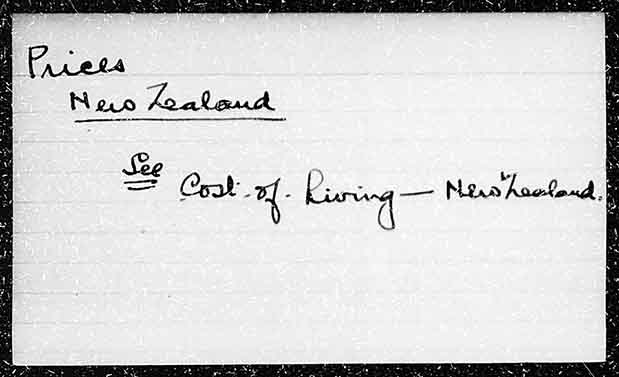 Prices
New Zealand
See
Cost-of-Living — New Zealand.